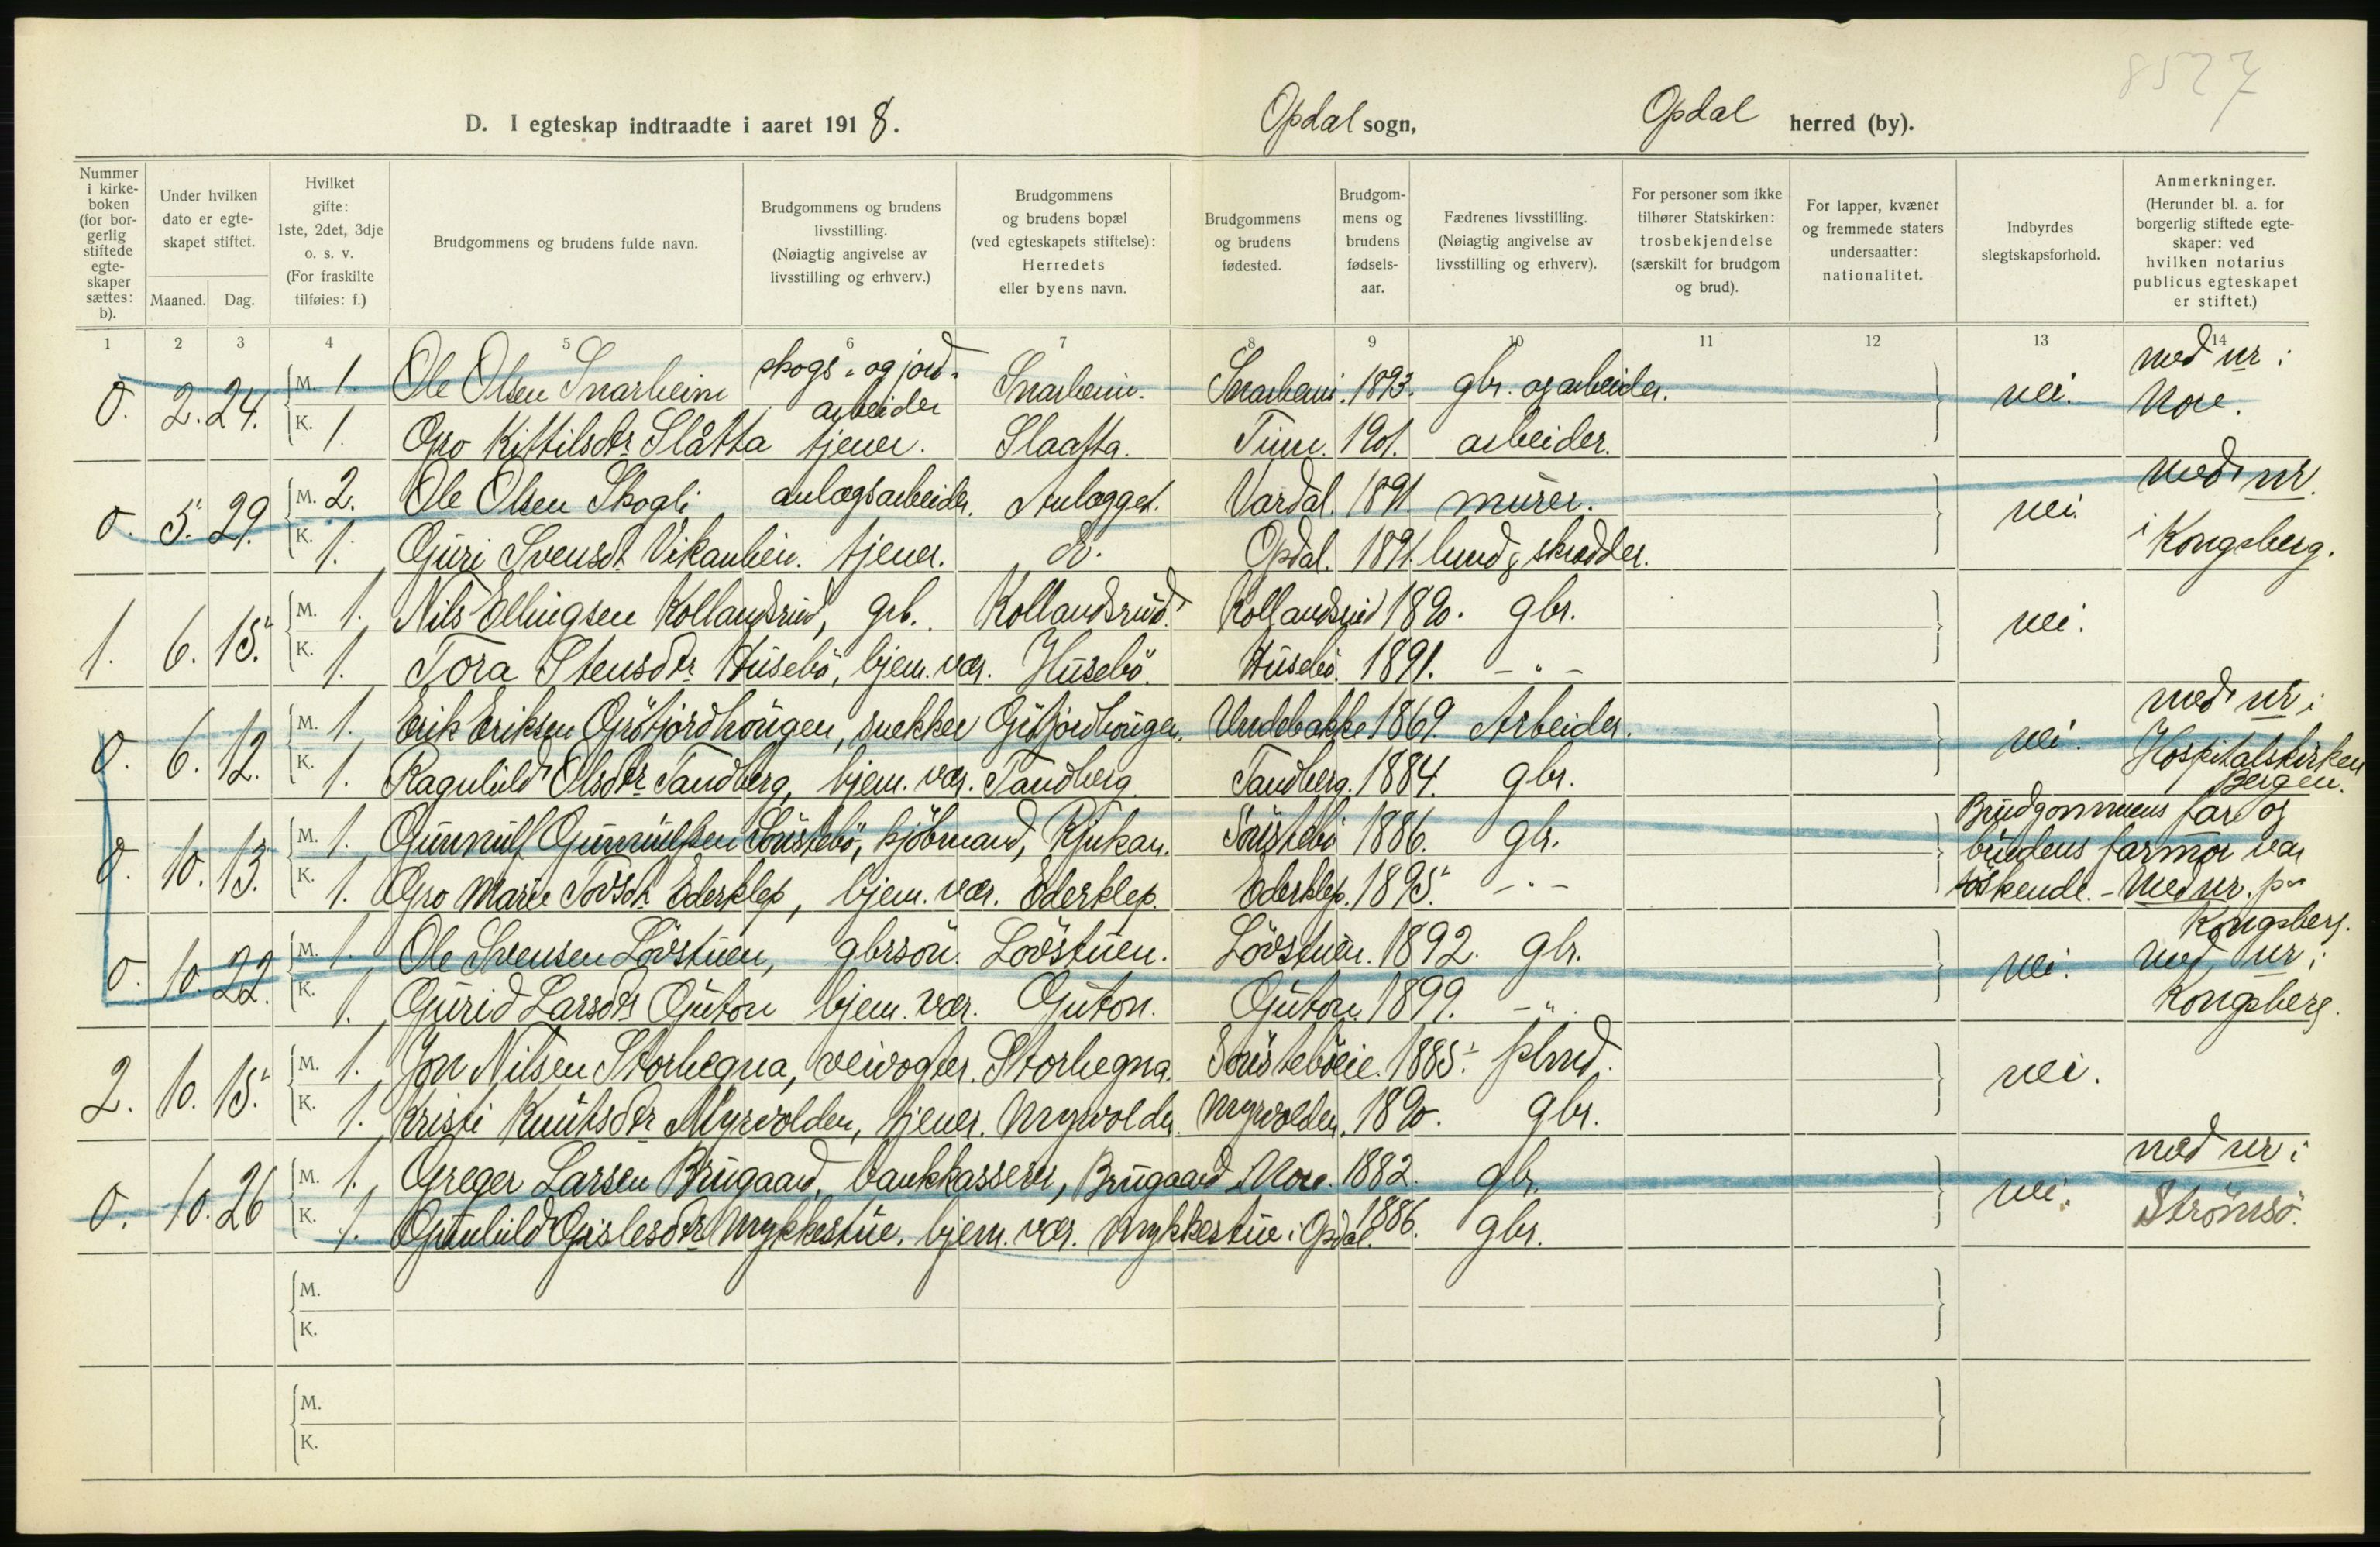 8527
D. I egteskap indtraadte i aaret 1918. Opdal sogn, Opdal herred (by).
Nummer i kirkeboken (for borgerlig stiftede egteskaper sættes: b).
Under hvilken dato er egteskapet stiftet.
Maaned. Dag.
Hvilket gifte: 1ste, 2det, 3dje o. s. v. (For fraskilte tilføies: f.)
Brudgommens og brudens fulde navn.
Brudgommens og brudens livsstilling. (Nøiagtig angivelse av livsstilling og erhverv.)
Brudgommens og brudens bopæl (ved egteskapets stiftelse): Herredets eller byens navn.
Brudgommens og brudens fødested.
Brudgommens og brudens fødselsaar.
Fædrenes livsstilling. (Nøiagtig angivelse av livsstilling og erhverv).
For personer som ikke tilhører Statskirken: trosbekjendelse (særskilt for brudgom og brud).
For lapper, kvæner og fremmede staters undersaatter: nationalitet.
Indbyrdes slegtskapsforhold.
Anmerkninger. (Herunder bl. a. for borgerlig stiftede egteskaper: ved hvilken notarius publicus egteskapet er stiftet.)
1 2 3 4 5 6 7 8 9 10 11 12 13 14
0. 2. 24. M. 1. Ole Olsen Snarheim skogs- og jord-arbeider Snarheim. Snarheim. 1893. gbr. og arbeider. nei. med nr i Nore.
K. 1. Gro Kittilsdr Slåtta tjener. Slaatta. Tinn. 1901. arbeider.
0. 5. 29. M. 2. Ole Olsen Skogli anlægsarbeider. Anlægget. Vardal. 1891. murer. nei. med nr. i Kongsberg.
K. 1. Guri Svensdt. Vikanhein. tjener. do. Opdal. 1891. skrædder.
1. 6. 15. M. 1. Nils Ellingsen Kollandsrud, grb. Kollandsrud. Kollandsrud 1890. gbr. nei.
K. 1. Tora Stensdr. Husebö, hjem. vær. Husebö. Husebö. 1891. - " -
0. 6. 12. M. 1. Erik Eriksen Grötjordhougen, snekker Grötjordhougen. Undebakke 1869. Arbeider. nei. med nr i Hospitalskirken Bergen.
K. 1. Ragnhild Olsdr Tandberg, hjem. vær. Tandberg. Tandberg. 1884. gbr.
0. 10. 13. M. 1. Gunnulf Gunnulfsen Sönstebö, kjöbmand, Rjukan. Sönstebö 1886. gbr. Brudgommens far og brudens farmor var söskende. - Med nr. paa Kongsberg.
K. 1. Gro Marie Tovsdt. Ederklep, hjem. vær. Ederklep. Ederklep. 1895. - " -
0. 10. 22. M. 1. Ole Svensen Lövstuen, gbrsön. Lövstuen. Lövstuen. 1892. gbr. nei. med nr i Kongsberg.
K. 1. Gurid Larsdr Guton hjem. vær. Guton. Guton. 1899. - " -
2. 10. 15. M. 1. Jon Nilsen Storhegna, veivogter. Storhegna. Sönsteböeie. 1885. plmd. nei.
K. 1. Kristi Knutsdr Myrvolden, tjener. Myrvolden. Myrvolden. 1890. gbr.
0. 10. 26 M. 1. Greger Larsen Brugaard, bankkasserer, Brugaard i Nore. 1882. gbr. nei. med nr i Strömsö.
K. 1. Gunhild Gislesdr Mykkestue. hjem. vær. Mykkestue i Opdal. 1886. gbr.
M.
K.
M.
K.